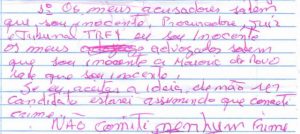 1º Os meus acusadores sabem
que sou inocente, Procurador, Juiz,
Tribunal TRF4 eu sou Inocente
Os meus advogados sabem
que sou inocente a Maioria do Povo
sabe que sou inocente!
Se eu aceitar a ideia de não ser
candidato estarei assumindo que cometi
crime.
NÃO Cometi nenhum Crime